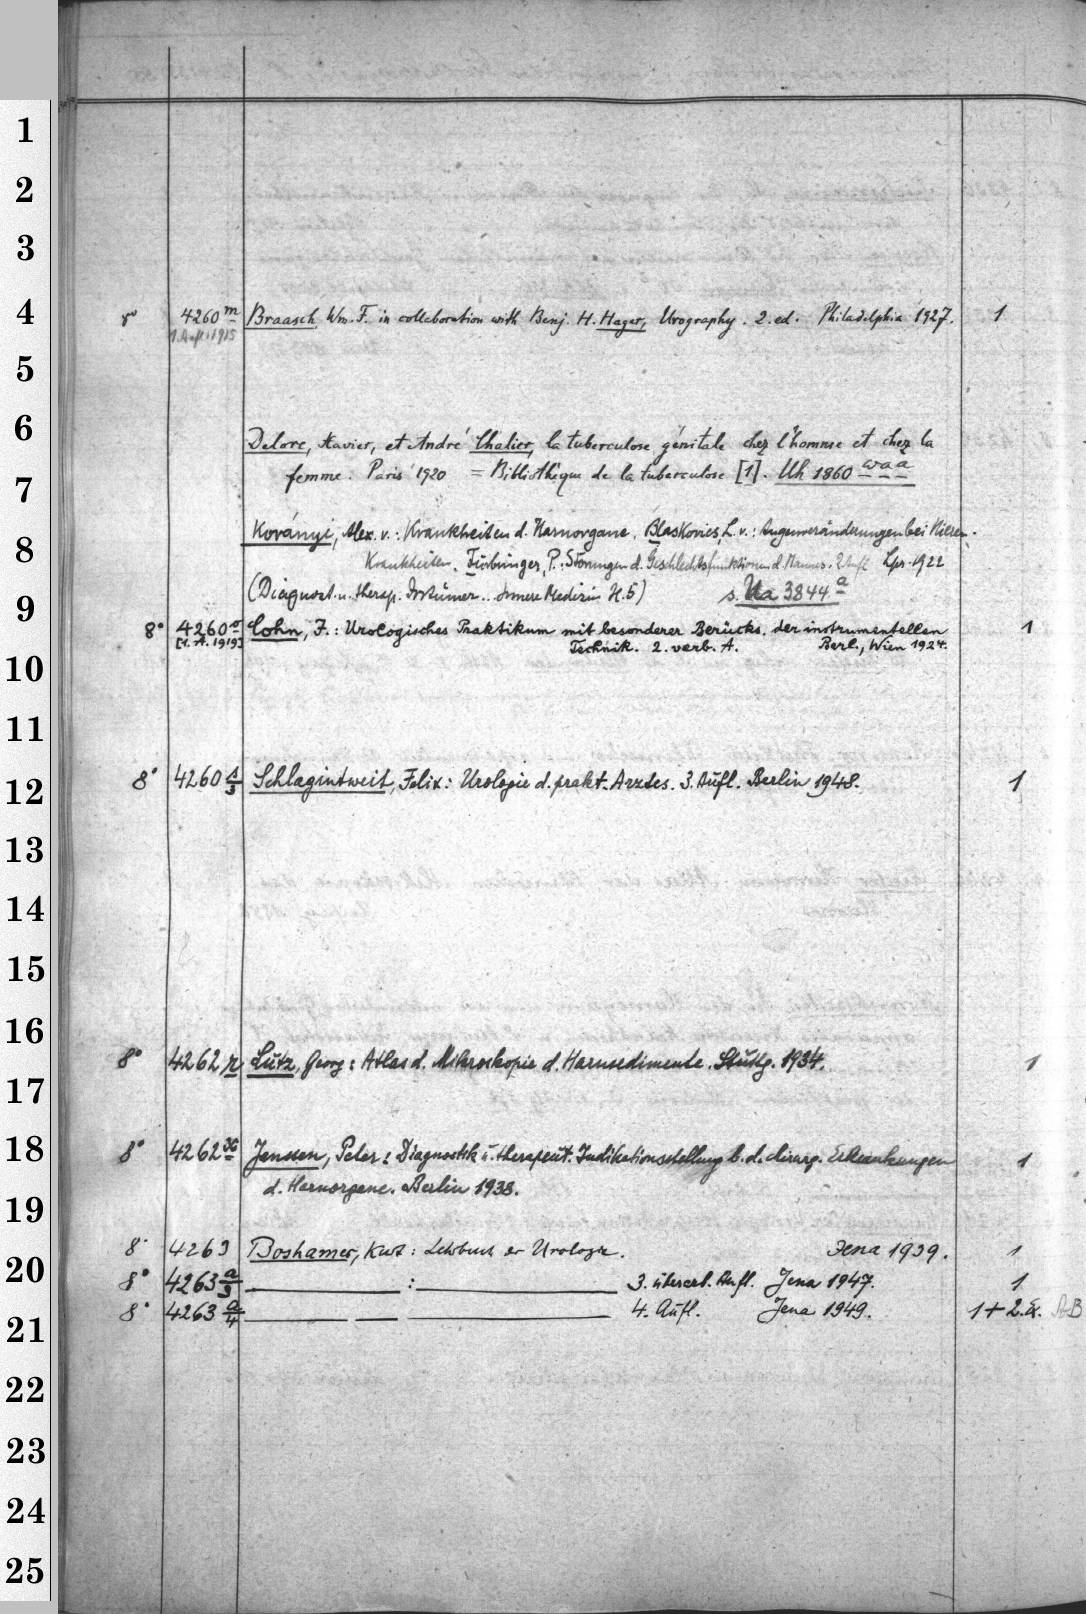 1
2
3
4
8° 4260 m Braasch, Wm. F. in collaboration with Benj. H. Hager, Urography. 2. ed. Philadelphia 1927. 1
1. Aufl. 1915
5
6
Delore, Xavier, et André Chalier, la tuberculose génitale chez l'homme et chez la
femme. Paris 1920 = Bibliothèque de la tuberculose [1]. Uh 1860 waa
7
Korányi, Alex. v.: Krankheiten d. Harnorgane, Blaskovics, L. v.: Augenveränderungen bei Nieren-
8
Krankheiten. Fürbringer, P.: Störungen d. Geschlechtsfunktionen d. Mannes. 2. Aufl. Lpz. 1922
(Diagnost. u. therap. Irrtümer .. Innere Medizin H. 5) s. Ua 3844 a
9
8° 4260 o Cohn, F.: Urologisches Praktikum mit besonderer Berücks. der instrumentellen 1
[1. A. 1919] Technik. 2. verb. A. Berl., Wien 1924.
10
11
12
8° 4260 s/3 Schlagintweit, Felix: Urologie d. prakt. Arztes. 3. Aufl. Berlin 1948. 1
13
14
15
16
8° 4262 r Lutz, Georg: Atlas d. Mikroskopie d. Harnsedimente. Stuttg. 1934. 1
17
18
8° 4262 x Janssen, Peter: Diagnostik u. therapeut. Indikationsstellung b. d. chirurg. Erkrankungen 1
d. Harnorgane. Berlin 1938.
19
8° 4263 Boshamer, Kurt: Lehrbuch der Urologie. Jena 1939. 1
20
8° 4263 a/3 : 3. überarb. Aufl. Jena 1947. 1
8° 4263 a/4 4. Aufl. Jena 1949. 1 + 2. Ex. AB
21
22
23
24
25